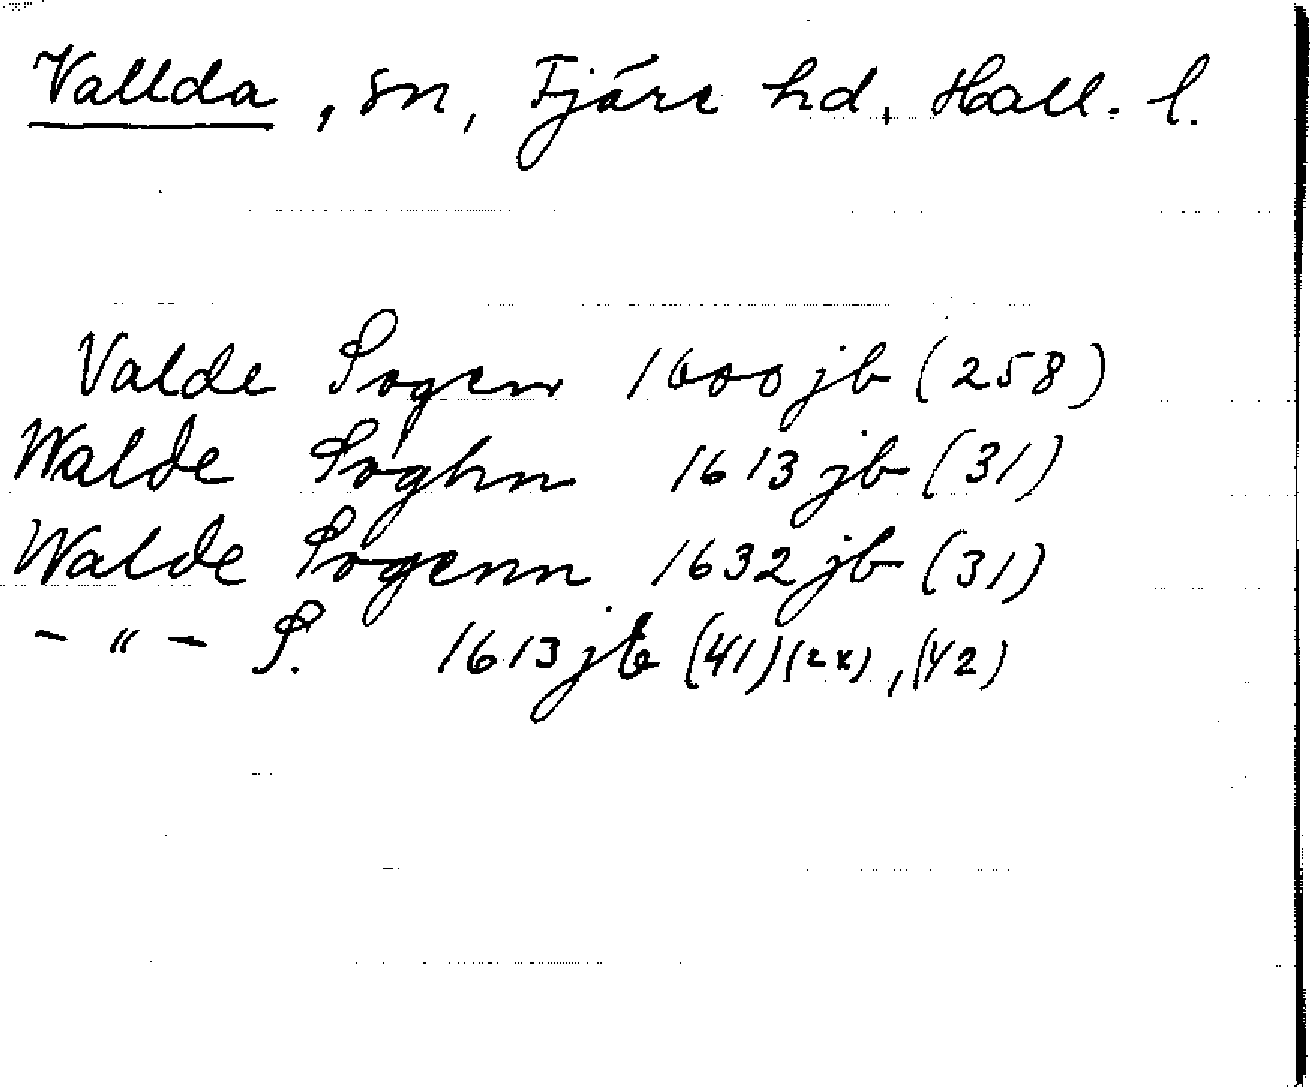 Vallda, sn, Fjäre hd, Hall. l.
Valde Sogen 1600 jb (258)
Walde Soghn 1613 jb (31)
Walde Sogenn 1632 jb (31)
- " - S. 1613 jb (41) (2x), (42)